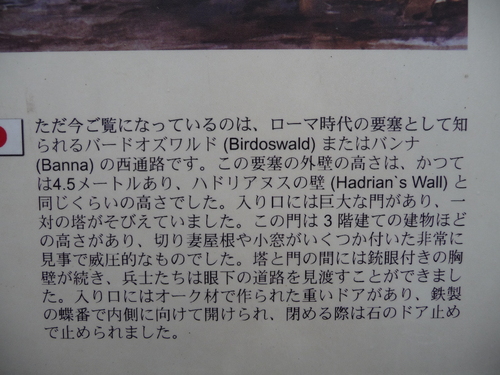 ただ今ご覧になっているのは、ローマ時代の要塞として知
られるバードオズワルド (Birdoswald) またはバンナ
(Banna) の西通路です。この要塞の外壁の高さは、かつて
は4.5メートルあり、ハドリアヌスの壁 (Hadrian`s Wall) と
同じくらいの高さでした。入り口には巨大な門があり、一
対の塔がそびえていました。この門は 3 階建ての建物ほど
の高さがあり、切り妻屋根や小窓がいくつか付いた非常に
見事で威圧的なものでした。塔と門の間には銃眼付きの胸
壁が続き、兵士たちは眼下の道路を見渡すことができまし
た。入り口にはオーク材で作られた重いドアがあり、鉄製
の蝶番で内側に向けて開けられ、閉める際は石のドア止め
で止められました。